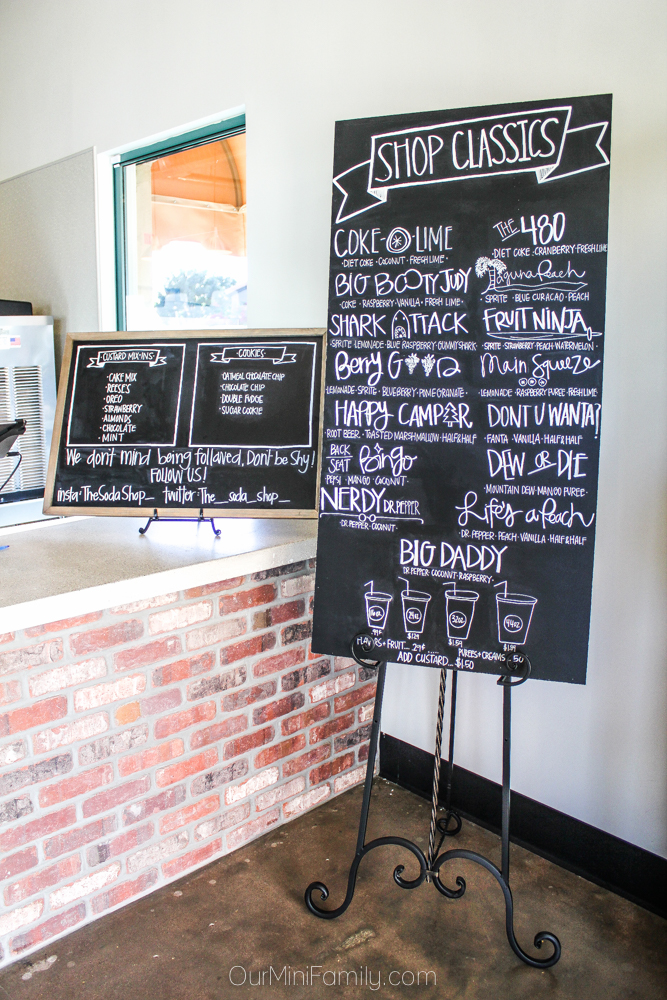 CUSTARD MIX-INS
• CAKE MIX
• REESE'S
• OREO
• STRAWBERRY
• ALMONDS
• CHOCOLATE
• MINT
COOKIES
OATMEAL CHOCOLATE CHIP
CHOCOLATE CHIP
DOUBLE FUDGE
SUGAR COOKIE
We don't mind being followed, Don't be Shy!
FOLLOW US!
insta: TheSodaShop_ twitter: The_soda_shop_
SHOP CLASSICS
COKE-O-LIME
• DIET COKE • COCONUT • FRESH LIME •
BIG BOOTY JUDY
• COKE • RASPBERRY • VANILLA • FRESH LIME •
SHARK ATTACK
• SPRITE • LEMONADE • BLUE RASPBERRY • GUMMY SHARK
Berry GOOD
• LEMONADE • SPRITE • BLUEBERRY • POMEGRANATE •
HAPPY CAMPER
ROOT BEER • TOASTED MARSHMALLOW • HALF&HALF
BACK SEAT Bingo
PEPSI • MANGO • COCONUT •
NERDY DR.PEPPER
• DR. PEPPER • COCONUT •
THE 480
• DIET COKE • CRANBERRY • FRESH LIME
Laguna Beach
SPRITE • BLUE CURACAO • PEACH
FRUIT NINJA
• SPRITE • STRAWBERRY • PEACH • WATERMELON •
Main Squeeze
• LEMONADE • RASPBERRY PUREE • FRESH LIME
DONT U WANTA?
• FANTA • VANILLA • HALF&HALF
DEW OR DIE
• MOUNTAIN DEW • MANGO PUREE •
Life's a Peach
• DR. PEPPER • PEACH • VANILLA • HALF&HALF
BIG DADDY
• DR. PEPPER • COCONUT • RASPBERRY •
24oz
32oz
44oz
$1.29
$1.59
FLAVORS + FRUIT ... 29¢
PUREES + CREAMS ... 50
ADD CUSTARD... $1.50
OurMiniFamily.com